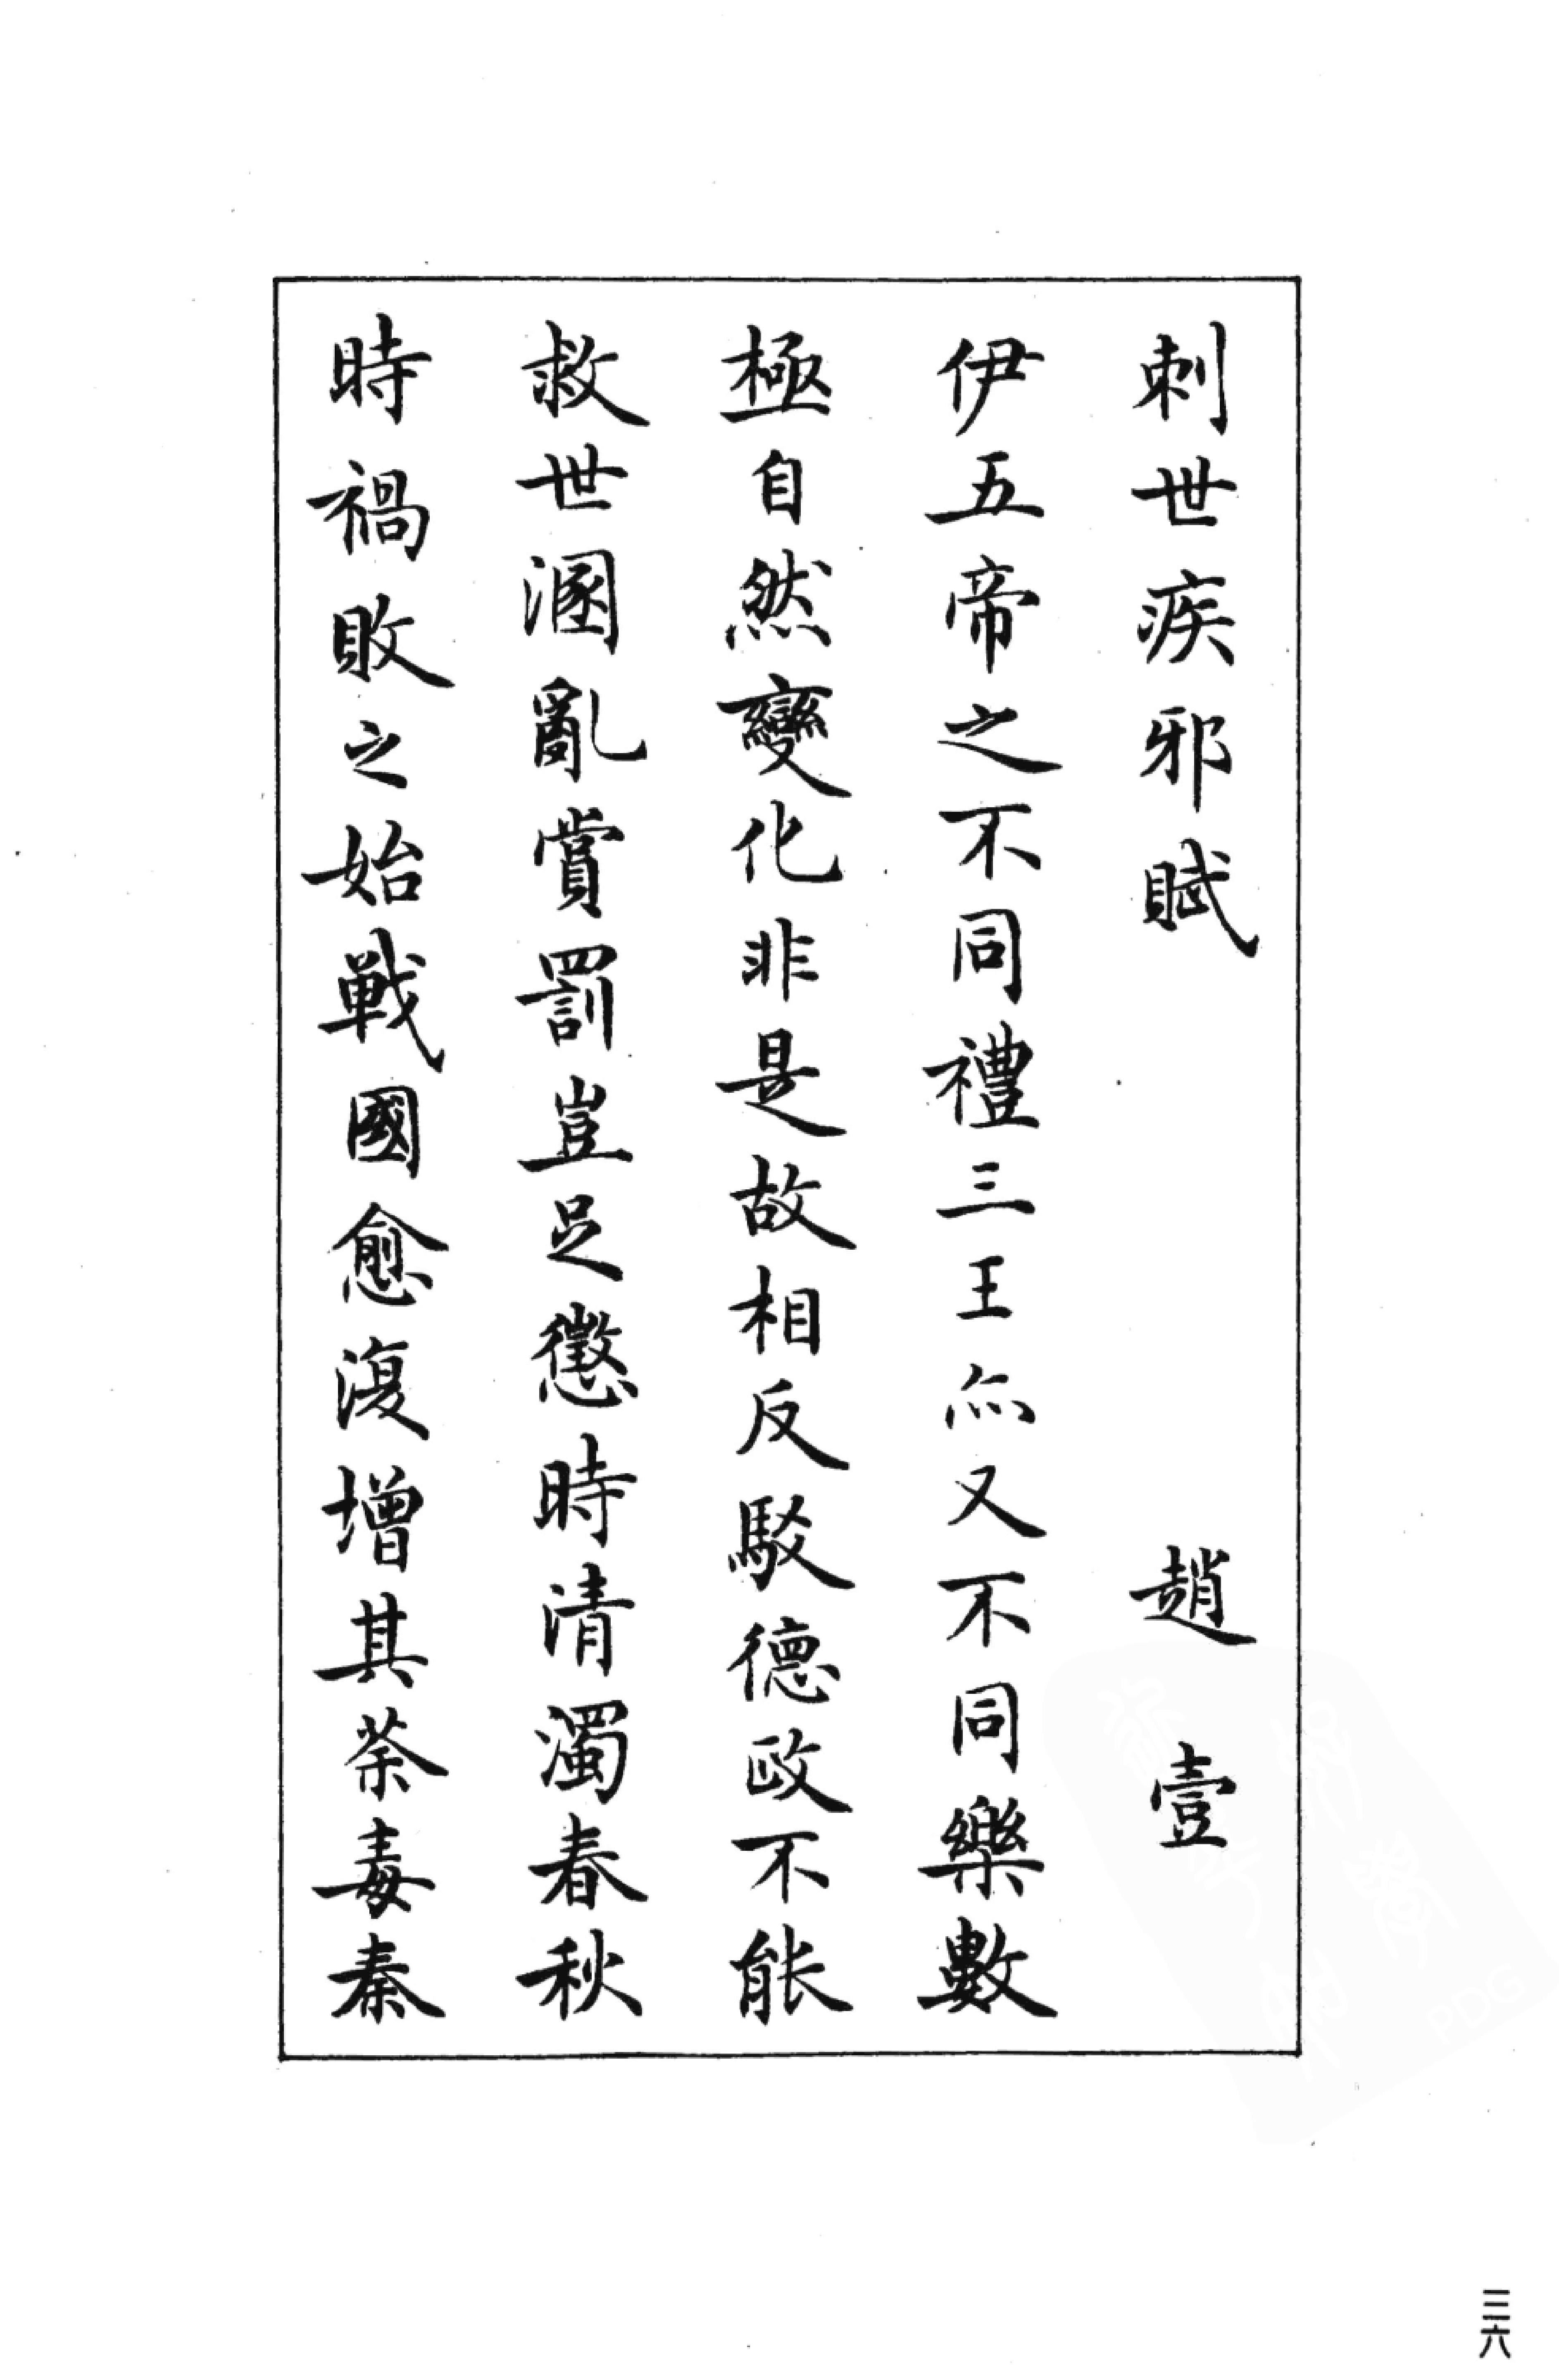 刺世疾邪賦 趙壹
伊五帝之不同禮三王亦又不同樂數
極自然變化非是故相反駁德政不能
救世溷亂賞罰豈足懲時清濁春秋
時禍敗之始戰國愈復增其荼毒秦
三六